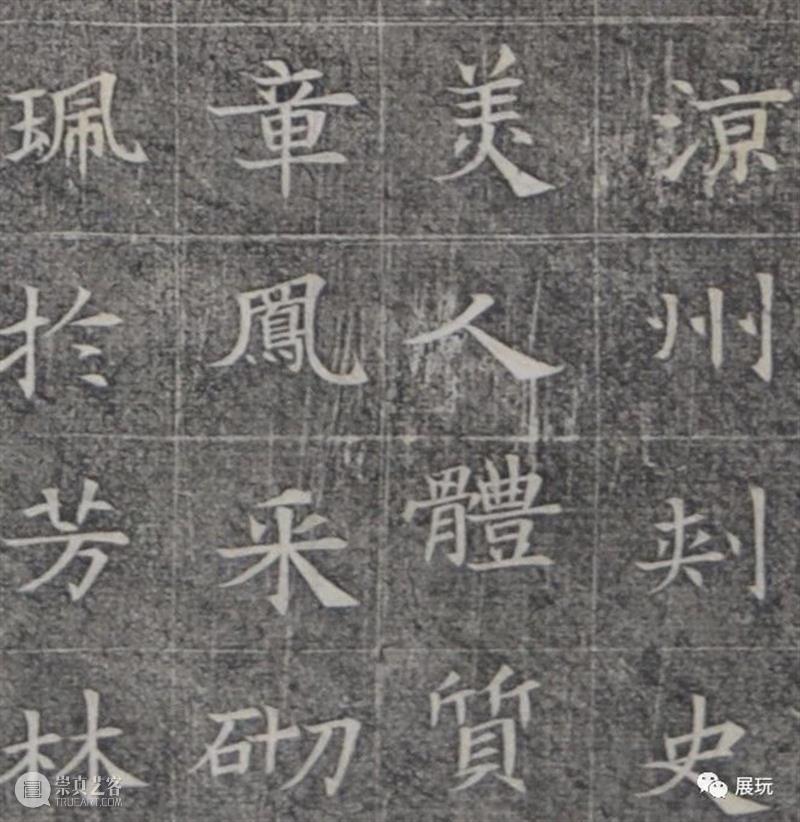 涼州刺史
美人體質
章鳳采砌
珮於芳林
崇真艺客
TRUEART.COM
展玩